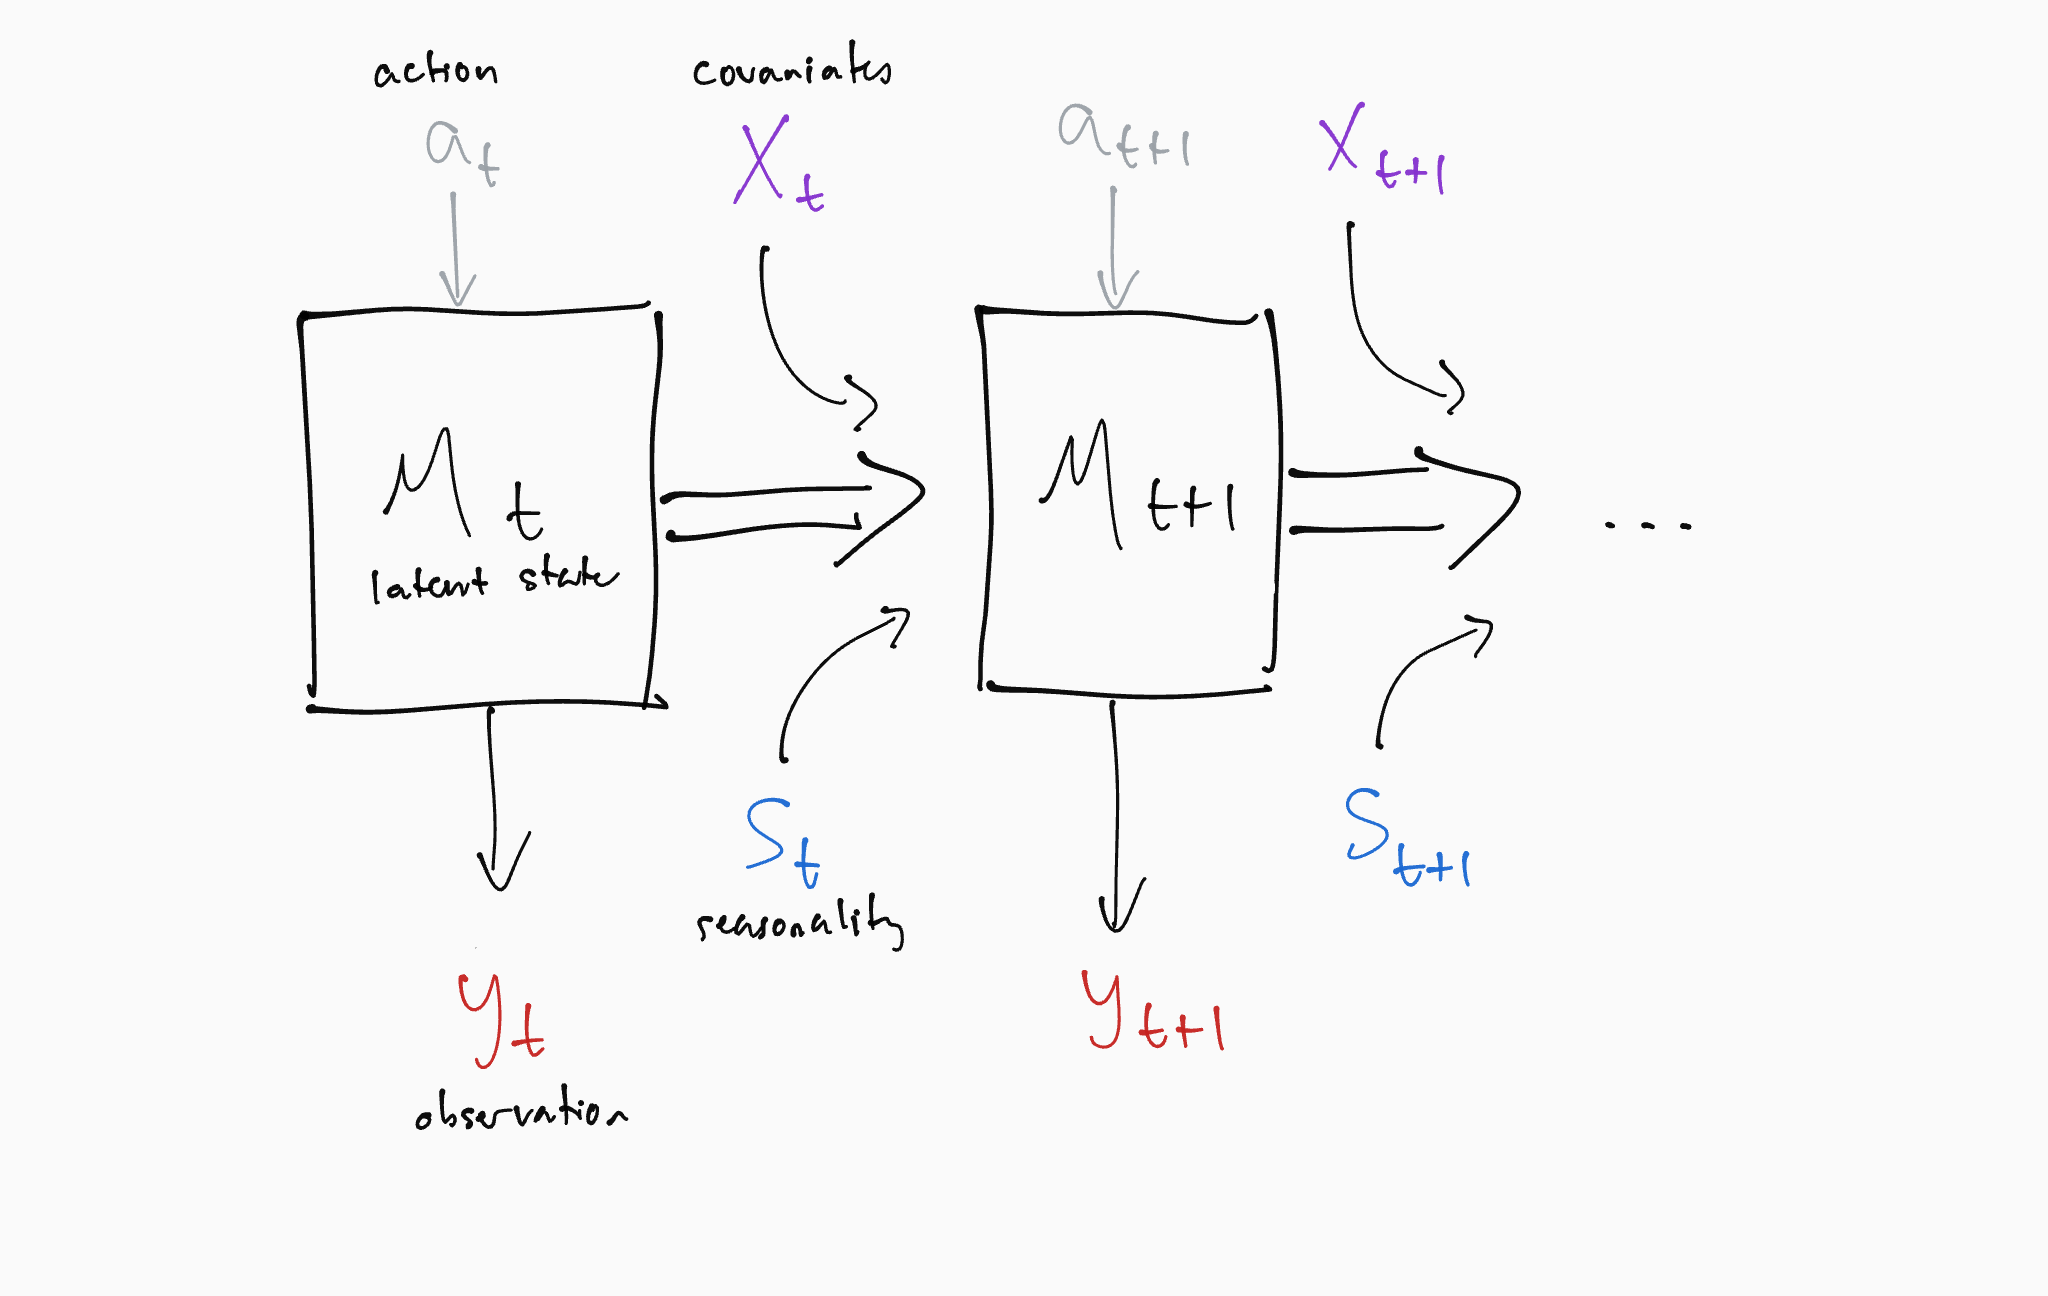 action covariates
a_t X_t a_{t+1} X_{t+1}
M_t M_{t+1}
latent state
....
S_t S_{t+1}
seasonality
y_t y_{t+1}
observation